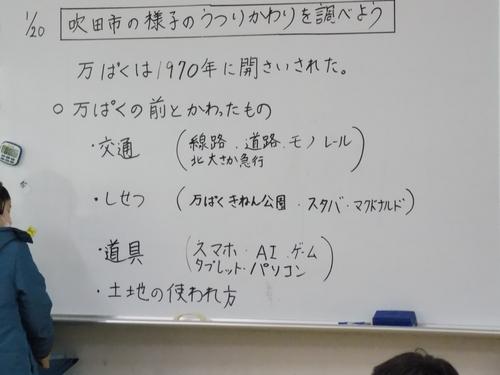 1/20
吹田市の様子のうつりかわりを調べよう
万ぱくは1970年に開さいされた。
○ 万ぱくの前とかわったもの
・交通 (線路・道路・モノレール
北大さか急行)
・しせつ (万ぱくきねん公園・スタバ・マクドナルド)
・道具 (スマホ・AI・ゲーム
タブレット・パソコン)
・土地の使われ方